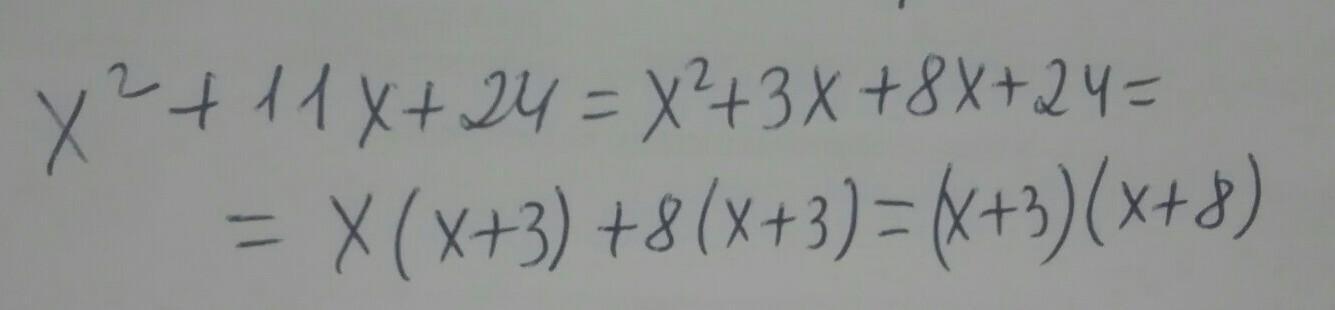 x² + 11x + 24 = x² + 3x + 8x + 24 =
= x(x+3) + 8(x+3) = (x+3)(x+8)